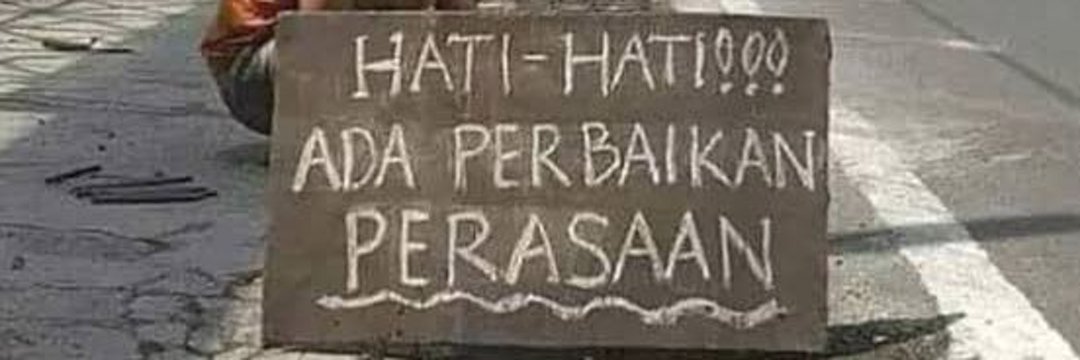 HATI-HATI!!!!
ADA PERBAIKAN
PERASAAN